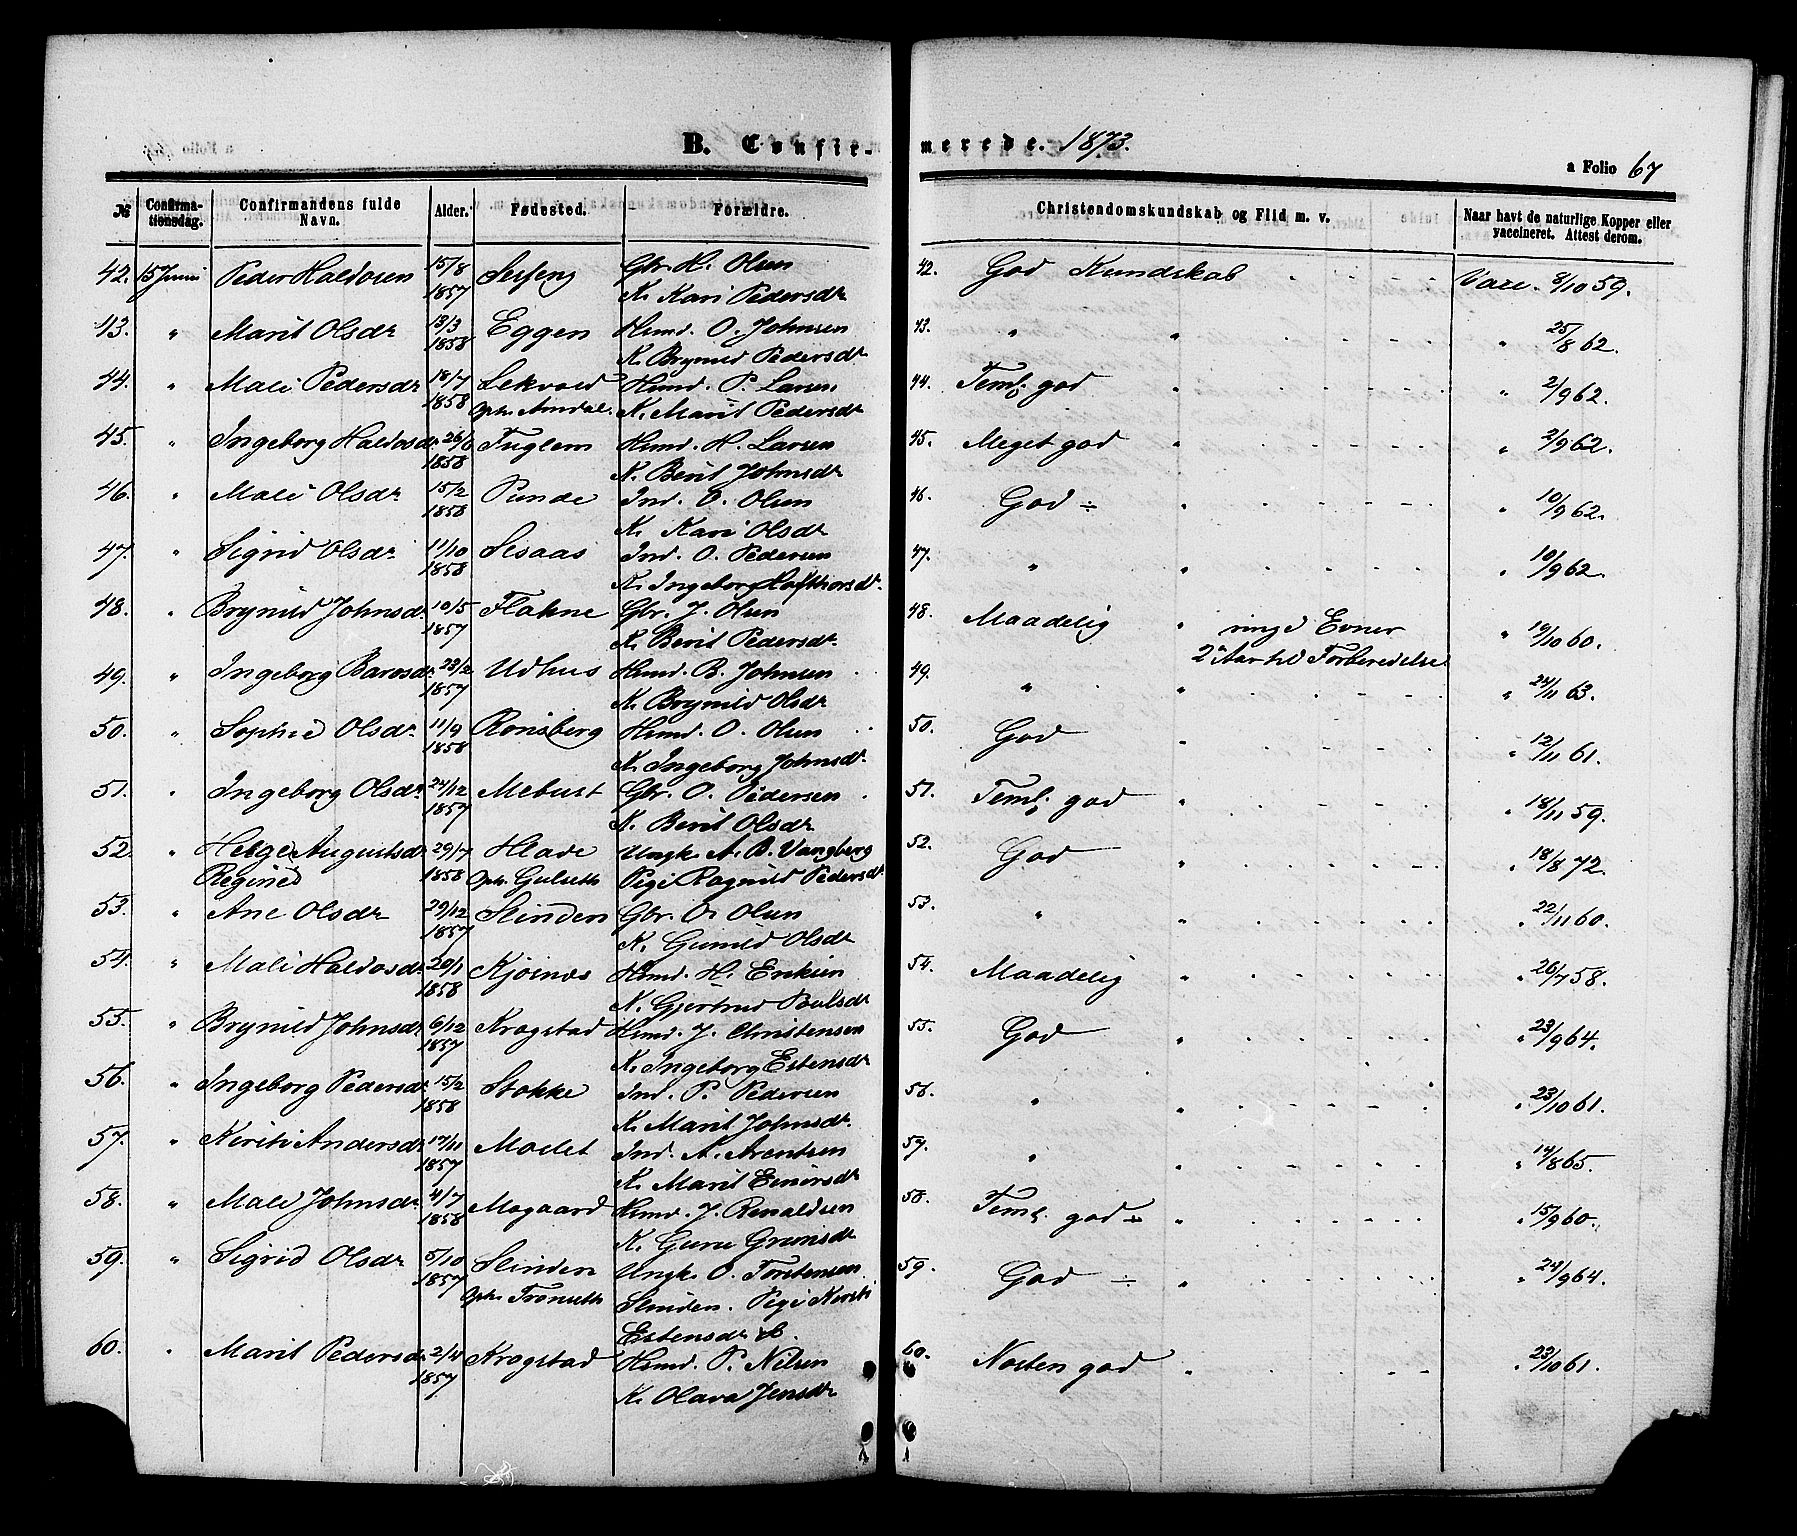 B. Confir-
merede. 1873.
a Folio 67
№ Confirma-tionsdag. Confirmandens fulde Navn. Alder. Fødested. Forældre.
Christendomskundskab og Flid m. v. Naar havt de naturlige Kopper eller vaccineret. Attest derom.
42. 15 Juni Peder Haldosen 15/8 1857 Gbr. H. Olsen
K. Kari Pedersdr
42. God Kundskab Vacc. 8/10 59.
43. " Marit Olsdr 13/3 1858 Eggen Hsmd. O. Johnsen
K. Brynild Pedersdr
43. " " " 25/8 62.
44. " Mali Pedersdr 18/7 1858 Sekvold Hsmd. P. Larsen
Oph. Amdal. K. Marit Pedersdr
44. Teml. god " " 2/9 62.
45. " Ingeborg Haldosdr 26/6 1858 Fuglem Hsmd. H. Larsen
K. Berit Johnsdr
45. Meget god " " 2/9 62.
46. " Mali Olsdr 15/2 1858 Ind. O. Olsen
K. Kari Olsdr
46. God ÷ " " 10/9 62.
47. " Sigrid Olsdr 11/10 1858 Sesaas Ind. O. Pedersen
K. Ingeborg Hafthorsdr
47. " " " 10/9 62.
48. " Brynild Johnsdr 10/5 1857 Flakne Gbr. J. Olsen
K. Berit Pedersdr
48. Maadelig " ringe Evner " 19/10 60.
2 Aar til Forberedelse
49. " Ingeborg Barosdr 23/2 1857 Udhus Hsmd. B. Johnsen
K. Brynild Olsdr
49. " " " 24/11 63.
50. " Sophie Olsdr 11/9 1858 Rønsberg Hsmd. O. Olsen
K. Ingeborg Johnsdr
50. God " " 12/11 61.
51. " Ingeborg Olsdr 24/12 1857 Mebust Gbr. O. Pedersen
K. Berit Olsdr
51. Teml. god " " 18/11 59.
52. " Helge Augustsdr 29/7 1858 Hlade Ungk. A. B. Vangberg
Oph. Gulseth Pige Ragnild Pedersdr
52. God " " 18/8 72.
53. " Ane Olsdr 29/12 1857 Slinden Gbr. O. Olsen
K. Gunild Olsdr
53. " " " 22/11 60.
54. " Mali Haldosdr 20/1 1858 Kjøsnes Hsmd. H. Eriksen
K. Gjertrud Paulsdr
54. Maadelig " " 26/7 58.
55. " Brynild Johnsdr 6/12 1857 Krogstad Hsmd. J. Christensen
K. Ingeborg Estensdr
55. God " " 23/9 64.
56. " Ingeborg Pedersdr 15/2 1858 Stokke Ind. P. Pedersen
K. Marit Johnsdr
56. " " " 23/10 61.
57. " Kirsti Andersdr 17/11 1857 Moslet Ind. A. Arentsen
K. Marit Einersdr
57. " " " 14/8 65.
58. " Mali Johnsdr 4/7 1858 Mogaard Hsmd. J. Renaldsen
K. Guru Grimsdr
58. Teml. god ÷ " " 15/9 60.
59. " Sigrid Olsdr 5/10 1857 Slinden Ungk. O. Torstensen
Oph. Trønseth Slinden. Pige Kirsti
Estensdr
59. God ÷ " " 24/9 64.
60. " Marit Pedersdr 2/4 1857 Krogstad Hsmd. P. Nilsen
K. Olava Jensdr
60. Næsten god " " 23/10 61.